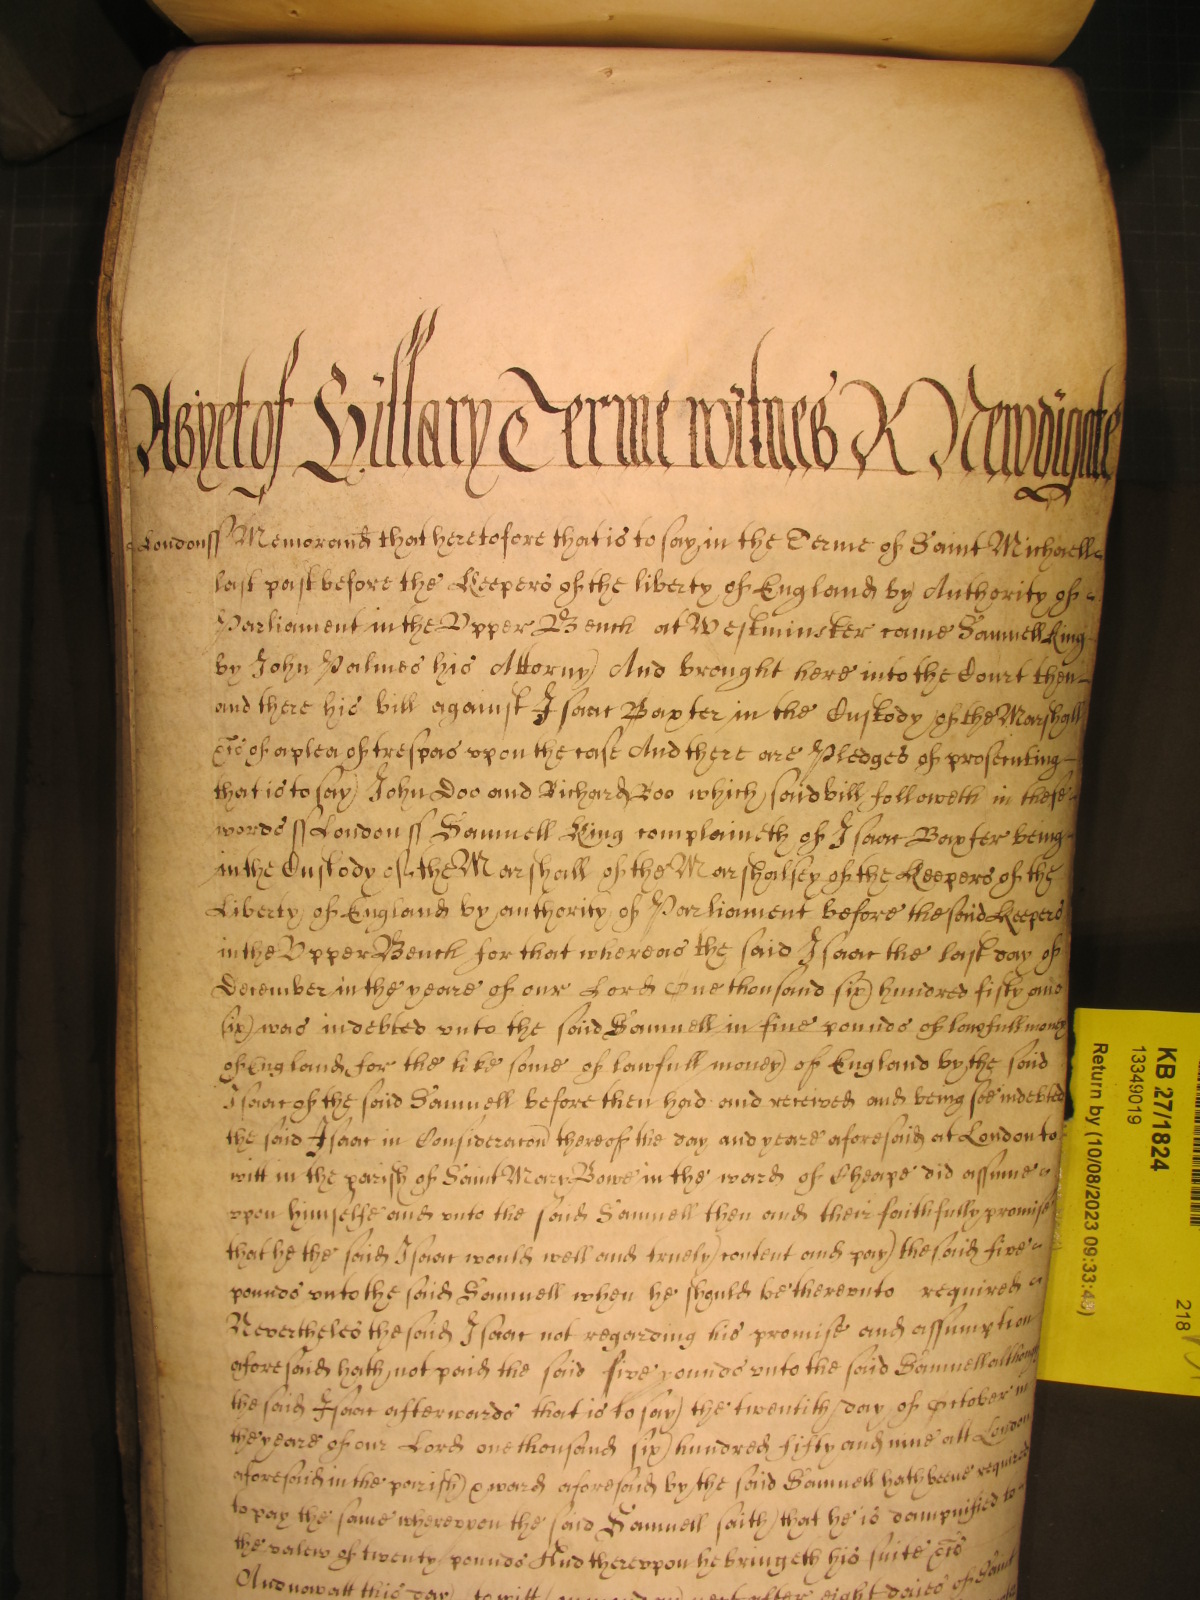 As yet of Hillary Terme witnes R Newdigate
London ss Memorand that heretofore that is to say in the Terme of Saint Michaell
last past before the Keepers of the liberty of England by Authority of
Parliament in the Vpper Bench at Westminster came Samuell King
by John Palmes his Attorny And brought here into the Court then
and there his bill against Isaac Baxter in the Custody of the Marshall
&c of a plea of trespas vpon the case And there are Pledges of prosecuting
that is to say John Doo and Richard Roo which said bill followeth in these
words ss London ss Samuell King complaineth of Isaac Baxter being
in the Custody of the Marshall of the Marshalsey of the Keepers of the
Liberty of England by authority of Parliament before the said Keepers
in the Vpper Bench for that whereas the said Isaac the last day of
December in the yeare of our Lord One thousand six hundred fifty and
six was indebted vnto the said Samuell in five pounds of lawfull money
of England for the like some of lawfull money of England by the said
Isaac of the said Samuell before then had and received and being soe indebted
the said Isaac in Consideracon thereof the day and yeare aforesaid at London to
witt in the parish of Saint Mary Bowe in the ward of Cheape did assume
vpon himselfe and vnto the said Samuell then and their faithfully promise
that he the said Isaac would well and truely content and pay the said five
pounds vnto the said Samuell when he should be therevnto required
Nevertheles the said Isaac not regarding his promise and assumption
aforesaid hath not paid the said five pounds vnto the said Samuell although
the said Isaac afterwards that is to say the twentith day of October in
the yeare of our Lord one thousand six hundred fifty and nine att London
aforesaid in the parish & ward aforesaid by the said Samuell hath beene required
to pay the same wherevpon the said Samuell saith that he is dampnified to
the valew of twenty pounds And therevpon he bringeth his suite &c
And now att this day to witt next after eight daies of Saint
KB 27/1824
13349019
Return by (10/08/2023 09:33:43)
218